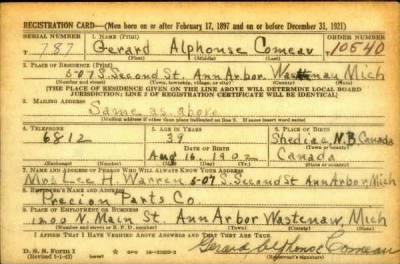 REGISTRATION CARD—(Men born on or after February 17, 1897 and on or before December 31, 1921)
SERIAL NUMBER 1. NAME (Print) ORDER NUMBER
T 787 Gerard Alphonse Comeau 10540
(First) (Middle) (Last)
2. PLACE OF RESIDENCE (Print)
507 S. Second St. Ann Arbor Wastenaw Mich
(Number and street) (Town, township, village, or city) (County) (State)
[THE PLACE OF RESIDENCE GIVEN ON THE LINE ABOVE WILL DETERMINE LOCAL BOARD
JURISDICTION; LINE 2 OF REGISTRATION CERTIFICATE WILL BE IDENTICAL]
3. MAILING ADDRESS
Same as above
[Mailing address if other than place indicated on line 2. If same insert word same]
4. TELEPHONE 5. AGE IN YEARS 6. PLACE OF BIRTH
6812 39 Shediac, N.B. Canada
DATE OF BIRTH (Town or county)
Aug 16, 1902 Canada
(Exchange) (Number) (Mo.) (Day) (Yr.) (State or country)
7. NAME AND ADDRESS OF PERSON WHO WILL ALWAYS KNOW YOUR ADDRESS
Mrs Lee H. Warren 507 S. Second St Ann Arbor, Mich
8. EMPLOYER'S NAME AND ADDRESS
Precion Parts Co.
9. PLACE OF EMPLOYMENT OR BUSINESS
1200 N. Main St. Ann Arbor Wastenaw, Mich
(Number and street or R. F. D. number) (Town) (County) (State)
I AFFIRM THAT I HAVE VERIFIED ABOVE ANSWERS AND THAT THEY ARE TRUE.
D. S. S. Form 1
Gerard Alphonse Comeau